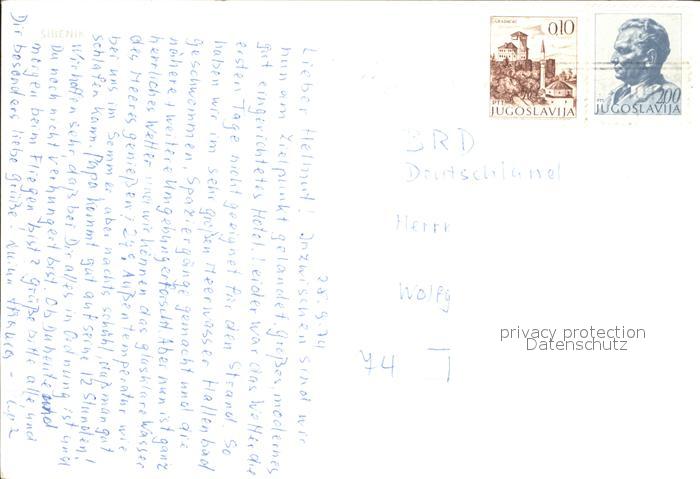 28.9.74
Lieber Helmut! Inzwischen sind wir
nun am Zielpunkt gelandet. Großes, modernes
gut eingerichtetes Hotel. Leider war das Wetter die
ersten Tage nicht geeignet für den Strand. So
haben wir im sehr großen Meerwasser Hallenbad
geschwommen, Spaziergänge gemacht und die
nähere + weitere Umgebung erforscht. Aber nun ist ganz
herrliches Wetter und wir können das glasklare Wasser
des Meeres genießen! 24°, Außentemperatur wie
bei uns im Sommer aber nachts kühl, daß man gut
schlafen kann. Papa kommt gut auf seine 12 Stunden!
Wir hoffen sehr, daß bei Dir alles in Ordnung ist und
Du noch nicht verhungert bist. Ob Du heute und
morgen beim Fliegen bist? Grüße bitte alle, und
Dir besonders liebe Grüße!
ŠIBENIK
GRADAČAC
0,10
PTT
JUGOSLAVIJA
2,00
PTT
JUGOSLAVIJA
BRD
Deutschland
Herrn
Wolfg
74
privacy protection
Datenschutz